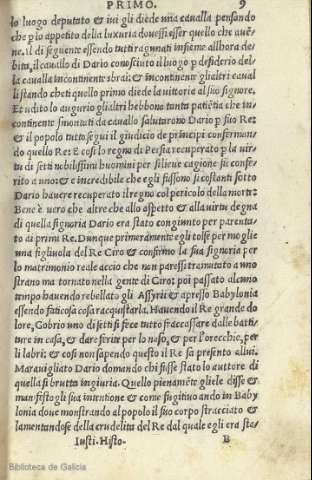 PRIMO. 9
lo luogo deputato & iui gli diede una caualla pensando
che p lo appetito della luxuria douessi esser quello che auē-
ne. il di seguente essendo tutti ragunati insieme allhora de
bita, il cauallo di Dario conosciuto il luogo p desiderio del
la caualla incontinente sbrai: & incontinente gli altri caual
li stando cheti quello primo diede la uittorie al suo signore.
Et udito lo augurio gli altri hebbono tanta patiētia che in-
continente smontati da cauallo salutarono Dario p suo Re:
& il popolo tutto segui il giudicio de principi conferman-
do quello Re: E cosi lo regno di Persia recuperato p la uir-
tu di setti nobilissimi huomini per si lieue cagione sii confe-
rito a uno: & e incredibile che egli fussono si costanti sotto
Dario hauere recuperato il regno col pericolo della morte:
Bene è uero che altre che allo aspetto & alla uirtu degna
di quella signoria Dario era stato congiunto per parenta-
to di primi Re. Dunque primeramente egli tolse per moglie
una figliuola del Re Ciro & confirmo la sua signoria per
lo matrimonio reale accio che non paressi tramutato a uno
strano ma tornato nella gente di Ciro: poi passato alcuno
tempo hauendo rebellato gli Assyrii & apresso Babylonia
essendo faticosa cosa racquistarla. Hauendo il Re grande do
lore, Gobrio uno di setti si fece tutto fracassare dalle batti-
ture in casa, & dare ferite per lo naso, & per l'orecchie, per
li labri: & cosi non sapendo questo il Re sa presento allui.
Marauigliato Dario domando chi fusse stato lo auttore di
quella si brutta ingiuria. Quello pienamēte gliele disse &
manifesto gli sua intentione & come fugitiuo ando in Baby
lonia doue monstrando al popolo il suo corpo stracciato &
lamentandose della crudelita del Re dal quale egli era sta-
Iusti. Histo. B
Biblioteca de Galicia